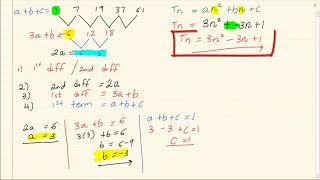 a+b+c= 1 7 19 37 61
3a+b = 6 12 18
2a = 6 6
Tn = an² + bn + c
Tn = 3n² - 3n + 1
Tn = 3n² - 3n + 1
1) 1st diff / 2nd diff
2) 2nd diff = 2a
3) 1st diff = 3a+b
4) 1st term = a+b+c
2a = 6
a = 3
3a + b = 6
3(3) + b = 6
b = 6-9
b = -3
a+b+c = 1
3 -3 +c = 1
c = 1